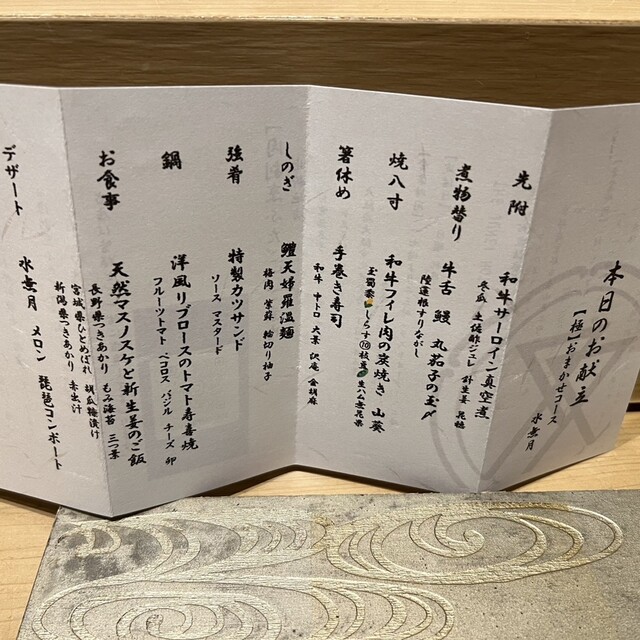 本日のお献立
【極】おまかせコース
水無月
先附
和牛サーロイン真空煮
冬瓜 土佐酢ジュレ 針生姜 花穂
煮物替り
牛舌 鰻 丸茄子の玉〆
陸蓮根すりながし
焼八寸
和牛フィレ肉の炭焼き 山葵
玉蜀黍 しらす⑩枝豆 生ハム無花果
箸休め
手巻き寿司
和牛 中トロ 大葉 沢庵 金胡麻
しのぎ
鱧天婦羅温麺
梅肉 紫蘇 輪切り柚子
強肴
特製カツサンド
ソース マスタード
鍋
洋風リブロースのトマト寿喜焼
フルーツトマト ペコロス バジル チーズ 卵
お食事
天然マスノスケと新生姜のご飯
長野県つきあかり もみ海苔 三つ葉
宮城県ひとめぼれ 胡瓜糠漬け
新潟県つきあかり 赤出汁
デザート
水無月 メロン 琵琶コンポート